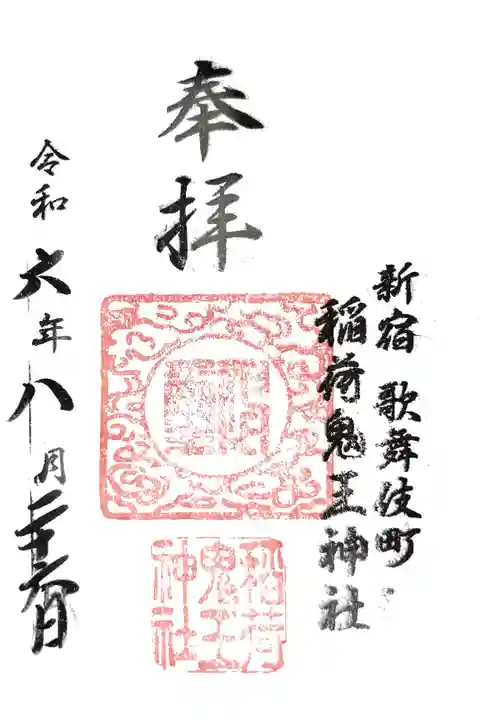 新宿 歌舞伎町
稲荷鬼王神社
奉拝
稲荷
鬼王
神社
令和六年八月二十六日